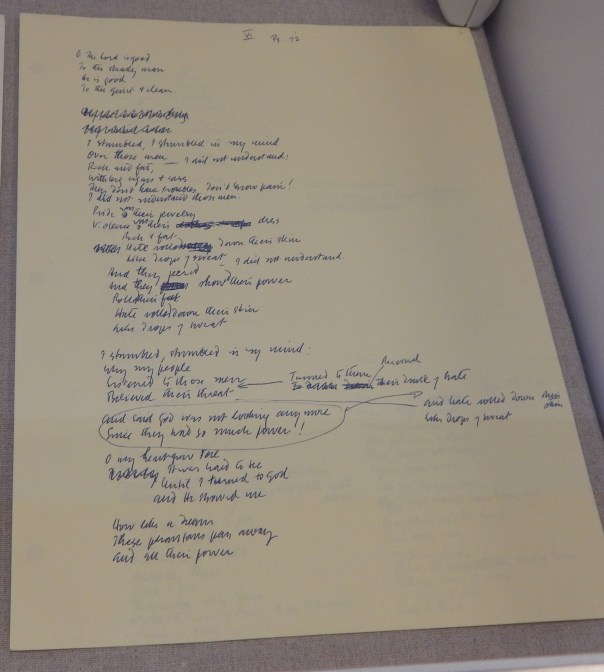 VI Ps. 72
O the Lord is good
To the steady man
He is good
To the quiet & clean.
I stumbled, I stumbled in my mind
Over those men — I did not understand:
Rich and fat,
With big cigars & cars
They don't have troubles, don't know pain!
I did not understand those men.
Pride is their jewelry
Violence is their dress
Rich & fat
Hate rolled down their skin
Like drops of sweat — I did not understand.
And they
And they show their power
Rolled their fat
Hate rolled down their skin
Like drops of sweat
I stumbled, stumbled in my mind:
Why my people
Listened to those men
Turned to them
Believed their threat
their drink of hate
And said God was not looking anymore
Since they had so much power!
and hate rolled down their skin
like drops of sweat
O my heart grew sore
It was hard to see
Until I turned to God
and He showed me
How like a dream
These phantoms pass away
And all their power